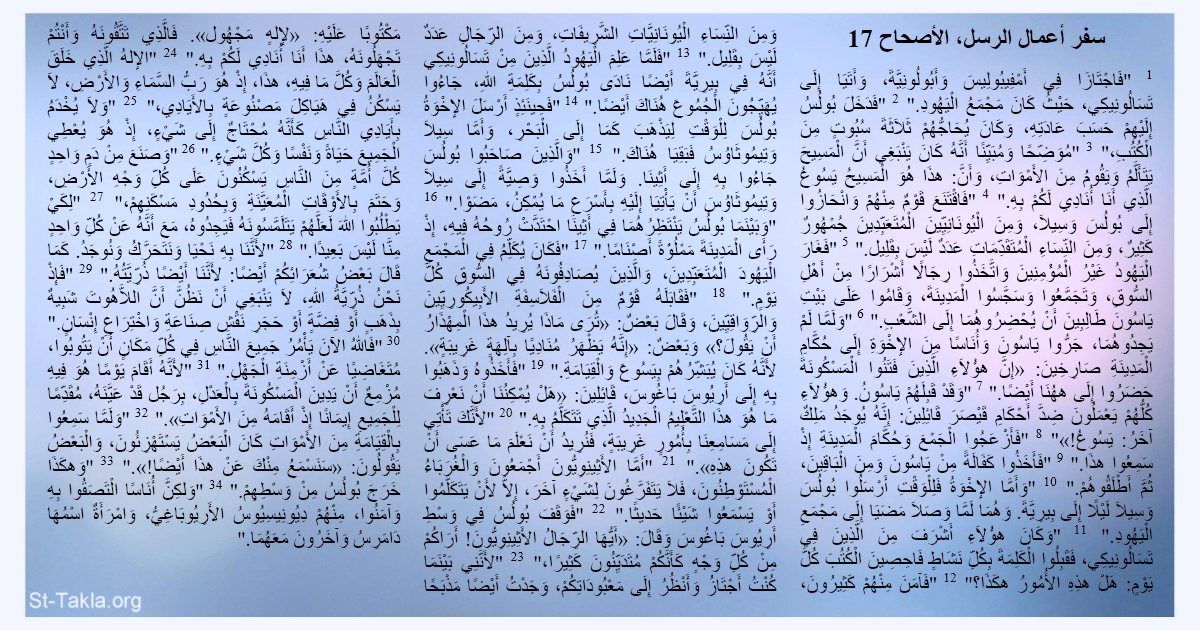 سفر أعمال الرسل، الأصحاح 17
1 "فَاجْتَازَا فِي أَمْفِيبُولِيسَ وَأَبُولُونِيَّةَ، وَأَتَيَا إِلَى
تَسَالُونِيكِي، حَيْثُ كَانَ مَجْمَعُ الْيَهُودِ." 2 "فَدَخَلَ بُولُسُ
إِلَيْهِمْ حَسَبَ عَادَتِهِ، وَكَانَ يُحَاجُّهُمْ ثَلاَثَةَ سُبُوتٍ مِنَ
الْكُتُبِ،" 3 "مُوَضِّحًا وَمُبَيِّنًا أَنَّهُ كَانَ يَنْبَغِي أَنَّ الْمَسِيحَ
يَتَأَلَّمُ وَيَقُومُ مِنَ الأَمْوَاتِ، وَأَنَّ: هذَا هُوَ الْمَسِيحُ يَسُوعُ
الَّذِي أَنَا أُنَادِي لَكُمْ بِهِ." 4 "فَاقْتَنَعَ قَوْمٌ مِنْهُمْ وَانْحَازُوا
إِلَى بُولُسَ وَسِيلاَ، وَمِنَ الْيُونَانِيِّينَ الْمُتَعَبِّدِينَ جُمْهُورٌ
كَثِيرٌ، وَمِنَ النِّسَاءِ الْمُتَقَدِّمَاتِ عَدَدٌ لَيْسَ بِقَلِيل." 5 "فَغَارَ
الْيَهُودُ غَيْرُ الْمُؤْمِنِينَ وَاتَّخَذُوا رِجَالًا أَشْرَارًا مِنْ أَهْلِ
السُّوقِ، وَتَجَمَّعُوا وَسَجَّسُوا الْمَدِينَةَ، وَقَامُوا عَلَى بَيْتِ
يَاسُونَ طَالِبِينَ أَنْ يُحْضِرُوهُمَا إِلَى الشَّعْبِ." 6 "وَلَمَّا لَمْ
يَجِدُوهُمَا، جَرُّوا يَاسُونَ وَأُنَاسًا مِنَ الإِخْوَةِ إِلَى حُكَّامِ
الْمَدِينَةِ صَارِخِينَ: «إِنَّ هؤُلاَءِ الَّذِينَ فَتَنُوا الْمَسْكُونَةَ
حَضَرُوا إِلَى ههُنَا أَيْضًا." 7 "وَقَدْ قَبِلَهُمْ يَاسُونُ. وَهؤُلاَءِ
كُلُّهُمْ يَعْمَلُونَ ضِدَّ أَحْكَامِ قَيْصَرَ قَائِلِينَ: إِنَّهُ يُوجَدُ مَلِكٌ
آخَرُ: يَسُوعُ!»" 8 "فَأَزْعَجُوا الْجَمْعَ وَحُكَّامَ الْمَدِينَةِ إِذْ
سَمِعُوا هذَا." 9 "فَأَخَذُوا كَفَالَةً مِنْ يَاسُونَ وَمِنَ الْبَاقِينَ،
ثُمَّ أَطْلَقُوهُمْ." 10 "وَأَمَّا الإِخْوَةُ فَلِلْوَقْتِ أَرْسَلُوا بُولُسَ
وَسِيلاَ لَيْلًا إِلَى بِيرِيَّةَ. وَهُمَا لَمَّا وَصَلاَ مَضَيَا إِلَى مَجْمَعِ
الْيَهُودِ." 11 "وَكَانَ هؤُلاَءِ أَشْرَفَ مِنَ الَّذِينَ فِي
تَسَالُونِيكِي، فَقَبِلُوا الْكَلِمَةَ بِكُلِّ نَشَاطٍ فَاحِصِينَ الْكُتُبَ كُلَّ
يَوْمٍ: هَلْ هذِهِ الأُمُورُ هكَذَا؟" 12 "فَآمَنَ مِنْهُمْ كَثِيرُونَ،
وَمِنَ النِّسَاءِ الْيُونَانِيَّاتِ الشَّرِيفَاتِ، وَمِنَ الرِّجَالِ عَدَدٌ
لَيْسَ بِقَلِيل." 13 "فَلَمَّا عَلِمَ الْيَهُودُ الَّذِينَ مِنْ تَسَالُونِيكِي
أَنَّهُ فِي بِيرِيَّةَ أَيْضًا نَادَى بُولُسُ بِكَلِمَةِ اللهِ، جَاءُوا
يُهَيِّجُونَ الْجُمُوعَ هُنَاكَ أَيْضًا." 14 "فَحِينَئِذٍ أَرْسَلَ الإِخْوَةُ
بُولُسَ لِلْوَقْتِ لِيَذْهَبَ كَمَا إِلَى الْبَحْرِ، وَأَمَّا سِيلاَ
وَتِيمُوثَاوُسُ فَبَقِيَا هُنَاكَ." 15 "وَالَّذِينَ صَاحَبُوا بُولُسَ
جَاءُوا بِهِ إِلَى أَثِينَا. وَلَمَّا أَخَذُوا وَصِيَّةً إِلَى سِيلاَ
وَتِيمُوثَاوُسَ أَنْ يَأْتِيَا إِلَيْهِ بِأَسْرَعِ مَا يُمْكِنُ، مَضَوْا." 16
"وَبَيْنَمَا بُولُسُ يَنْتَظِرُهُمَا فِي أَثِينَا احْتَدَّتْ رُوحُهُ فِيهِ، إِذْ
رَأَى الْمَدِينَةَ مَمْلُؤَةً أَصْنَامًا." 17 "فَكَانَ يُكَلِّمُ فِي الْمَجْمَعِ
الْيَهُودَ الْمُتَعَبِّدِينَ، وَالَّذِينَ يُصَادِفُونَهُ فِي السُّوقِ كُلَّ
يَوْمٍ." 18 "فَقَابَلَهُ قَوْمٌ مِنَ الْفَلاَسِفَةِ الأَبِيكُورِيِّينَ
وَالرِّوَاقِيِّينَ، وَقَالَ بَعْضٌ: «تُرَى مَاذَا يُرِيدُ هذَا الْمِهْذَارُ
أَنْ يَقُولَ؟» وَبَعْضٌ: «إِنَّهُ يَظْهَرُ مُنَادِيًا بِآلِهَةٍ غَرِيبَةٍ».
لأَنَّهُ كَانَ يُبَشِّرُهُمْ بِيَسُوعَ وَالْقِيَامَةِ." 19 "فَأَخَذُوهُ وَذَهَبُوا
بِهِ إِلَى أَرِيُوسَ بَاغُوسَ، قَائِلِينَ: «هَلْ يُمْكِنُنَا أَنْ نَعْرِفَ
مَا هُوَ هذَا التَّعْلِيمُ الْجَدِيدُ الَّذِي تَتَكَلَّمُ بِهِ." 20 "لأَنَّكَ تَأْتِي
إِلَى مَسَامِعِنَا بِأُمُورٍ غَرِيبَةٍ، فَنُرِيدُ أَنْ نَعْلَمَ مَا عَسَى أَنْ
تَكُونَ هذِهِ»." 21 "أَمَّا الأَثِينِوِيُّونَ أَجْمَعُونَ وَالْغُرَبَاءُ
الْمُسْتَوْطِنُونَ، فَلاَ يَتَفَرَّغُونَ لِشَيْءٍ آخَرَ، إِلاَّ لأَنْ يَتَكَلَّمُوا
أَوْ يَسْمَعُوا شَيْئًا حَديثًا." 22 "فَوَقَفَ بُولُسُ فِي وَسْطِ
أَرِيُوسَ بَاغُوسَ وَقَالَ: «أَيُّهَا الرِّجَالُ الأَثِينِوِيُّونَ! أَرَاكُمْ
مِنْ كُلِّ وَجْهٍ كَأَنَّكُمْ مُتَدَيِّنُونَ كَثِيرًا،" 23 "لأَنَّنِي بَيْنَمَا
كُنْتُ أَجْتَازُ وَأَنْظُرُ إِلَى مَعْبُودَاتِكُمْ، وَجَدْتُ أَيْضًا مَذْبَحًا
مَكْتُوبًا عَلَيْهِ: «لإِلهٍ مَجْهُول». فَالَّذِي تَتَّقُونَهُ وَأَنْتُمْ
تَجْهَلُونَهُ، هذَا أَنَا أُنَادِي لَكُمْ بِهِ." 24 "الإِلهُ الَّذِي خَلَقَ
الْعَالَمَ وَكُلَّ مَا فِيهِ، هذَا، إِذْ هُوَ رَبُّ السَّمَاءِ وَالأَرْضِ، لاَ
يَسْكُنُ فِي هَيَاكِلَ مَصْنُوعَةٍ بِالأَيَادِي،" 25 "وَلاَ يُخْدَمُ
بِأَيَادِي النَّاسِ كَأَنَّهُ مُحْتَاجٌ إِلَى شَيْءٍ، إِذْ هُوَ يُعْطِي
الْجَمِيعَ حَيَاةً وَنَفْسًا وَكُلَّ شَيْءٍ." 26 "وَصَنَعَ مِنْ دَمٍ وَاحِدٍ
كُلَّ أُمَّةٍ مِنَ النَّاسِ يَسْكُنُونَ عَلَى كُلِّ وَجْهِ الأَرْضِ،
وَحَتَمَ بِالأَوْقَاتِ الْمُعَيَّنَةِ وَبِحُدُودِ مَسْكَنِهِمْ،" 27 "لِكَيْ
يَطْلُبُوا اللهَ لَعَلَّهُمْ يَتَلَمَّسُونَهُ فَيَجِدُوهُ، مَعَ أَنَّهُ عَنْ كُلِّ وَاحِدٍ
مِنَّا لَيْسَ بَعِيدًا." 28 "لأَنَّنَا بِهِ نَحْيَا وَنَتَحَرَّكُ وَنُوجَدُ. كَمَا
قَالَ بَعْضُ شُعَرَائِكُمْ أَيْضًا: لأَنَّنَا أَيْضًا ذُرِّيَّتُهُ." 29 "فَإِذْ
نَحْنُ ذُرِّيَّةُ اللهِ، لاَ يَنْبَغِي أَنْ نَظُنَّ أَنَّ اللاَّهُوتَ شَبِيهٌ
بِذَهَبٍ أَوْ فِضَّةٍ أَوْ حَجَرِ نَقْشِ صِنَاعَةِ وَاخْتِرَاعِ إِنْسَانٍ."
30 "فَاللهُ الآنَ يَأْمُرُ جَمِيعَ النَّاسِ فِي كُلِّ مَكَانٍ أَنْ يَتُوبُوا،
مُتَغَاضِيًا عَنْ أَزْمِنَةِ الْجَهْلِ." 31 "لأَنَّهُ أَقَامَ يَوْمًا هُوَ فِيهِ
مُزْمِعٌ أَنْ يَدِينَ الْمَسْكُونَةَ بِالْعَدْلِ، بِرَجُل قَدْ عَيَّنَهُ، مُقَدِّمًا
لِلْجَمِيعِ إِيمَانًا إِذْ أَقَامَهُ مِنَ الأَمْوَاتِ»." 32 "وَلَمَّا سَمِعُوا
بِالْقِيَامَةِ مِنَ الأَمْوَاتِ كَانَ الْبَعْضُ يَسْتَهْزِئُونَ، وَالْبَعْضُ
يَقُولُونَ: «سَنَسْمَعُ مِنْكَ عَنْ هذَا أَيْضًا!»." 33 "وَهكَذَا
خَرَجَ بُولُسُ مِنْ وَسْطِهِمْ." 34 "وَلكِنَّ أُنَاسًا الْتَصَقُوا بِهِ
وَآمَنُوا، مِنْهُمْ دِيُونِيسِيُوسُ الأَرِيُوبَاغِيُّ، وَامْرَأَةٌ اسْمُهَا
دَامَرِسُ وَآخَرُونَ مَعَهُمَا."
St-Takla.org